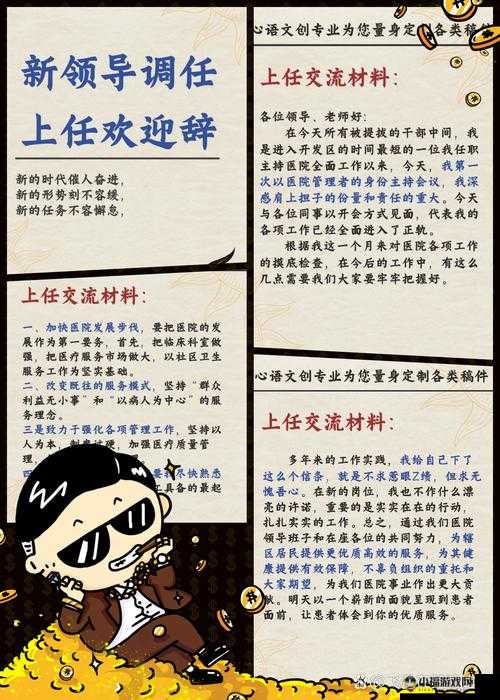 新领导调任
上任欢迎辞
新的时代催人奋进，
新的形势刻不容缓，
新的任务不容懈怠，
上任交流材料：
一、加快医院发展步伐，要把医院的发
展作为第一要务，首先，把临床科室做
强，把医疗服务市场做大，以社区卫生
服务工作为坚实基础。
二、改变既往的服务模式，坚持“群众
利益无小事”和“以病人为中心”的服
务理念。
三是致力于强化各项管理工作，坚持以
人为本，制度过硬，加强医疗质量管
理，
四
要我尽快熟悉
工具备的最起
心语文创专业为您量身定制各类稿件
上任交流材料：
各位领导、老师好：
在今天所有被提拔的干部中间，我
是进入开发区的时间最短的一位我任职
主持医院全面工作以来，今天，我第一
次以医院管理者的身份主持会议，我深
感肩上担子的份量和责任的重大。今天
与各位同事以开会方式见面，代表我的
各项工作已经全面进入了正轨。
根据我这一个月来对医院各项工作
的摸底检查，在今后的工作中，有这么
几点需要我们大家要牢牢把握好。
心语文创专业为您量身定制各类稿件
上任交流材料：
多年来的工作实践，我给自己下了
这么个信条，就是不求惹眼Z绩，但求无
愧吾心。在新的岗位，我也不作什么漂
亮的许诺，重要的是实实在在的行动，
扎扎实实的工作。总之，通过我们医院
领导班子和在座各位的共同努力，为辖
区居民提供更优质高效的服务，为其健
康提供有效保障，不辜负组织的重托和
大家期望，为我们医院事业作出更大贡
献。明天以一个崭新的面貌呈现到患者
面前，让患者体会到你的优质服务。
小福游戏网